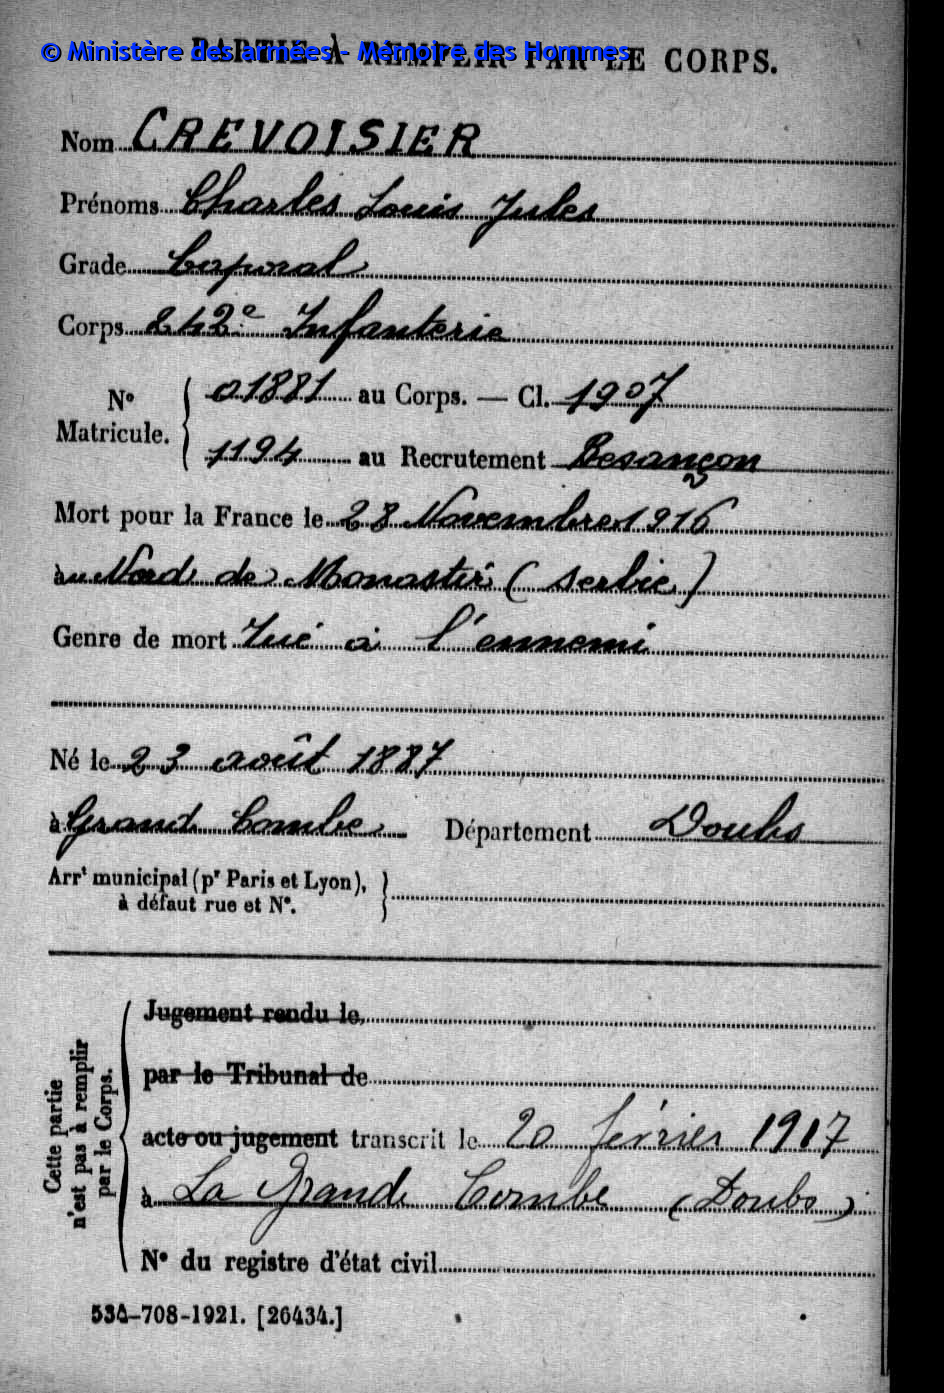 © Ministère des armées - Mémoire des Hommes
PARTIE À REMPLIR PAR LE CORPS.
Nom CREVOISIER
Prénoms Charles Louis Jules
Grade Caporal
Corps 242e Infanterie
No Matricule. { 01881 au Corps. — Cl. 1907
1194 au Recrutement Besançon
Mort pour la France le 28 Novembre 1916
au Nord de Monastir (Serbie)
Genre de mort Tué à l'ennemi
Né le 23 août 1887
à Grand Combe Département Doubs
Arrt municipal (pr Paris et Lyon),
à défaut rue et No.
Cette partie
n'est pas à remplir
par le Corps.
Jugement rendu le
par le Tribunal de
acte ou jugement transcrit le 20 février 1917
à La Grande Combe (Doubs)
No du registre d'état civil
534-708-1921. [26434.]